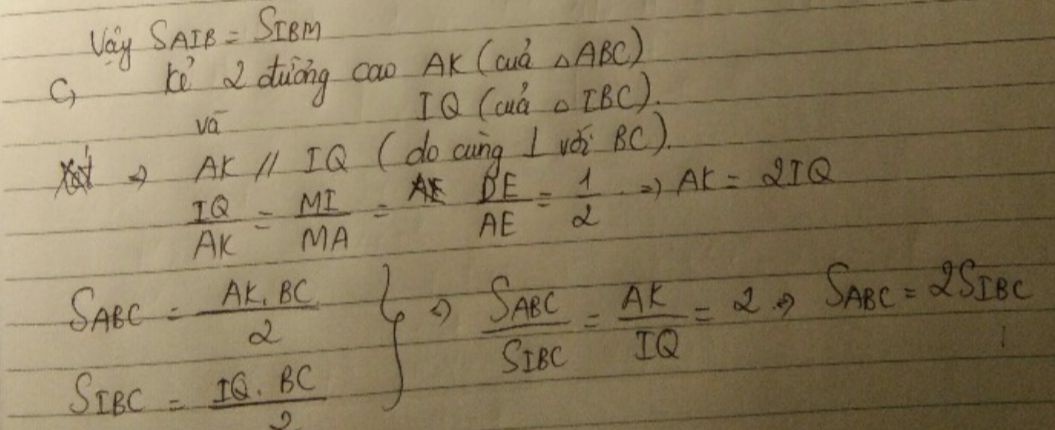 Vậy SAIB = SIBM
C, Kẻ 2 đường cao AK (cuả △ABC)
và IQ (cuả △IBC).
⇒ AK // IQ (do cùng ⊥ với BC).
IQ/AK = MI/MA = DE/AE = 1/2 ⇒ AK = 2IQ
SABC = AK.BC/2
SIBC = IQ.BC/2
} ⇒ SABC/SIBC = AK/IQ = 2 ⇒ SABC = 2SIBC